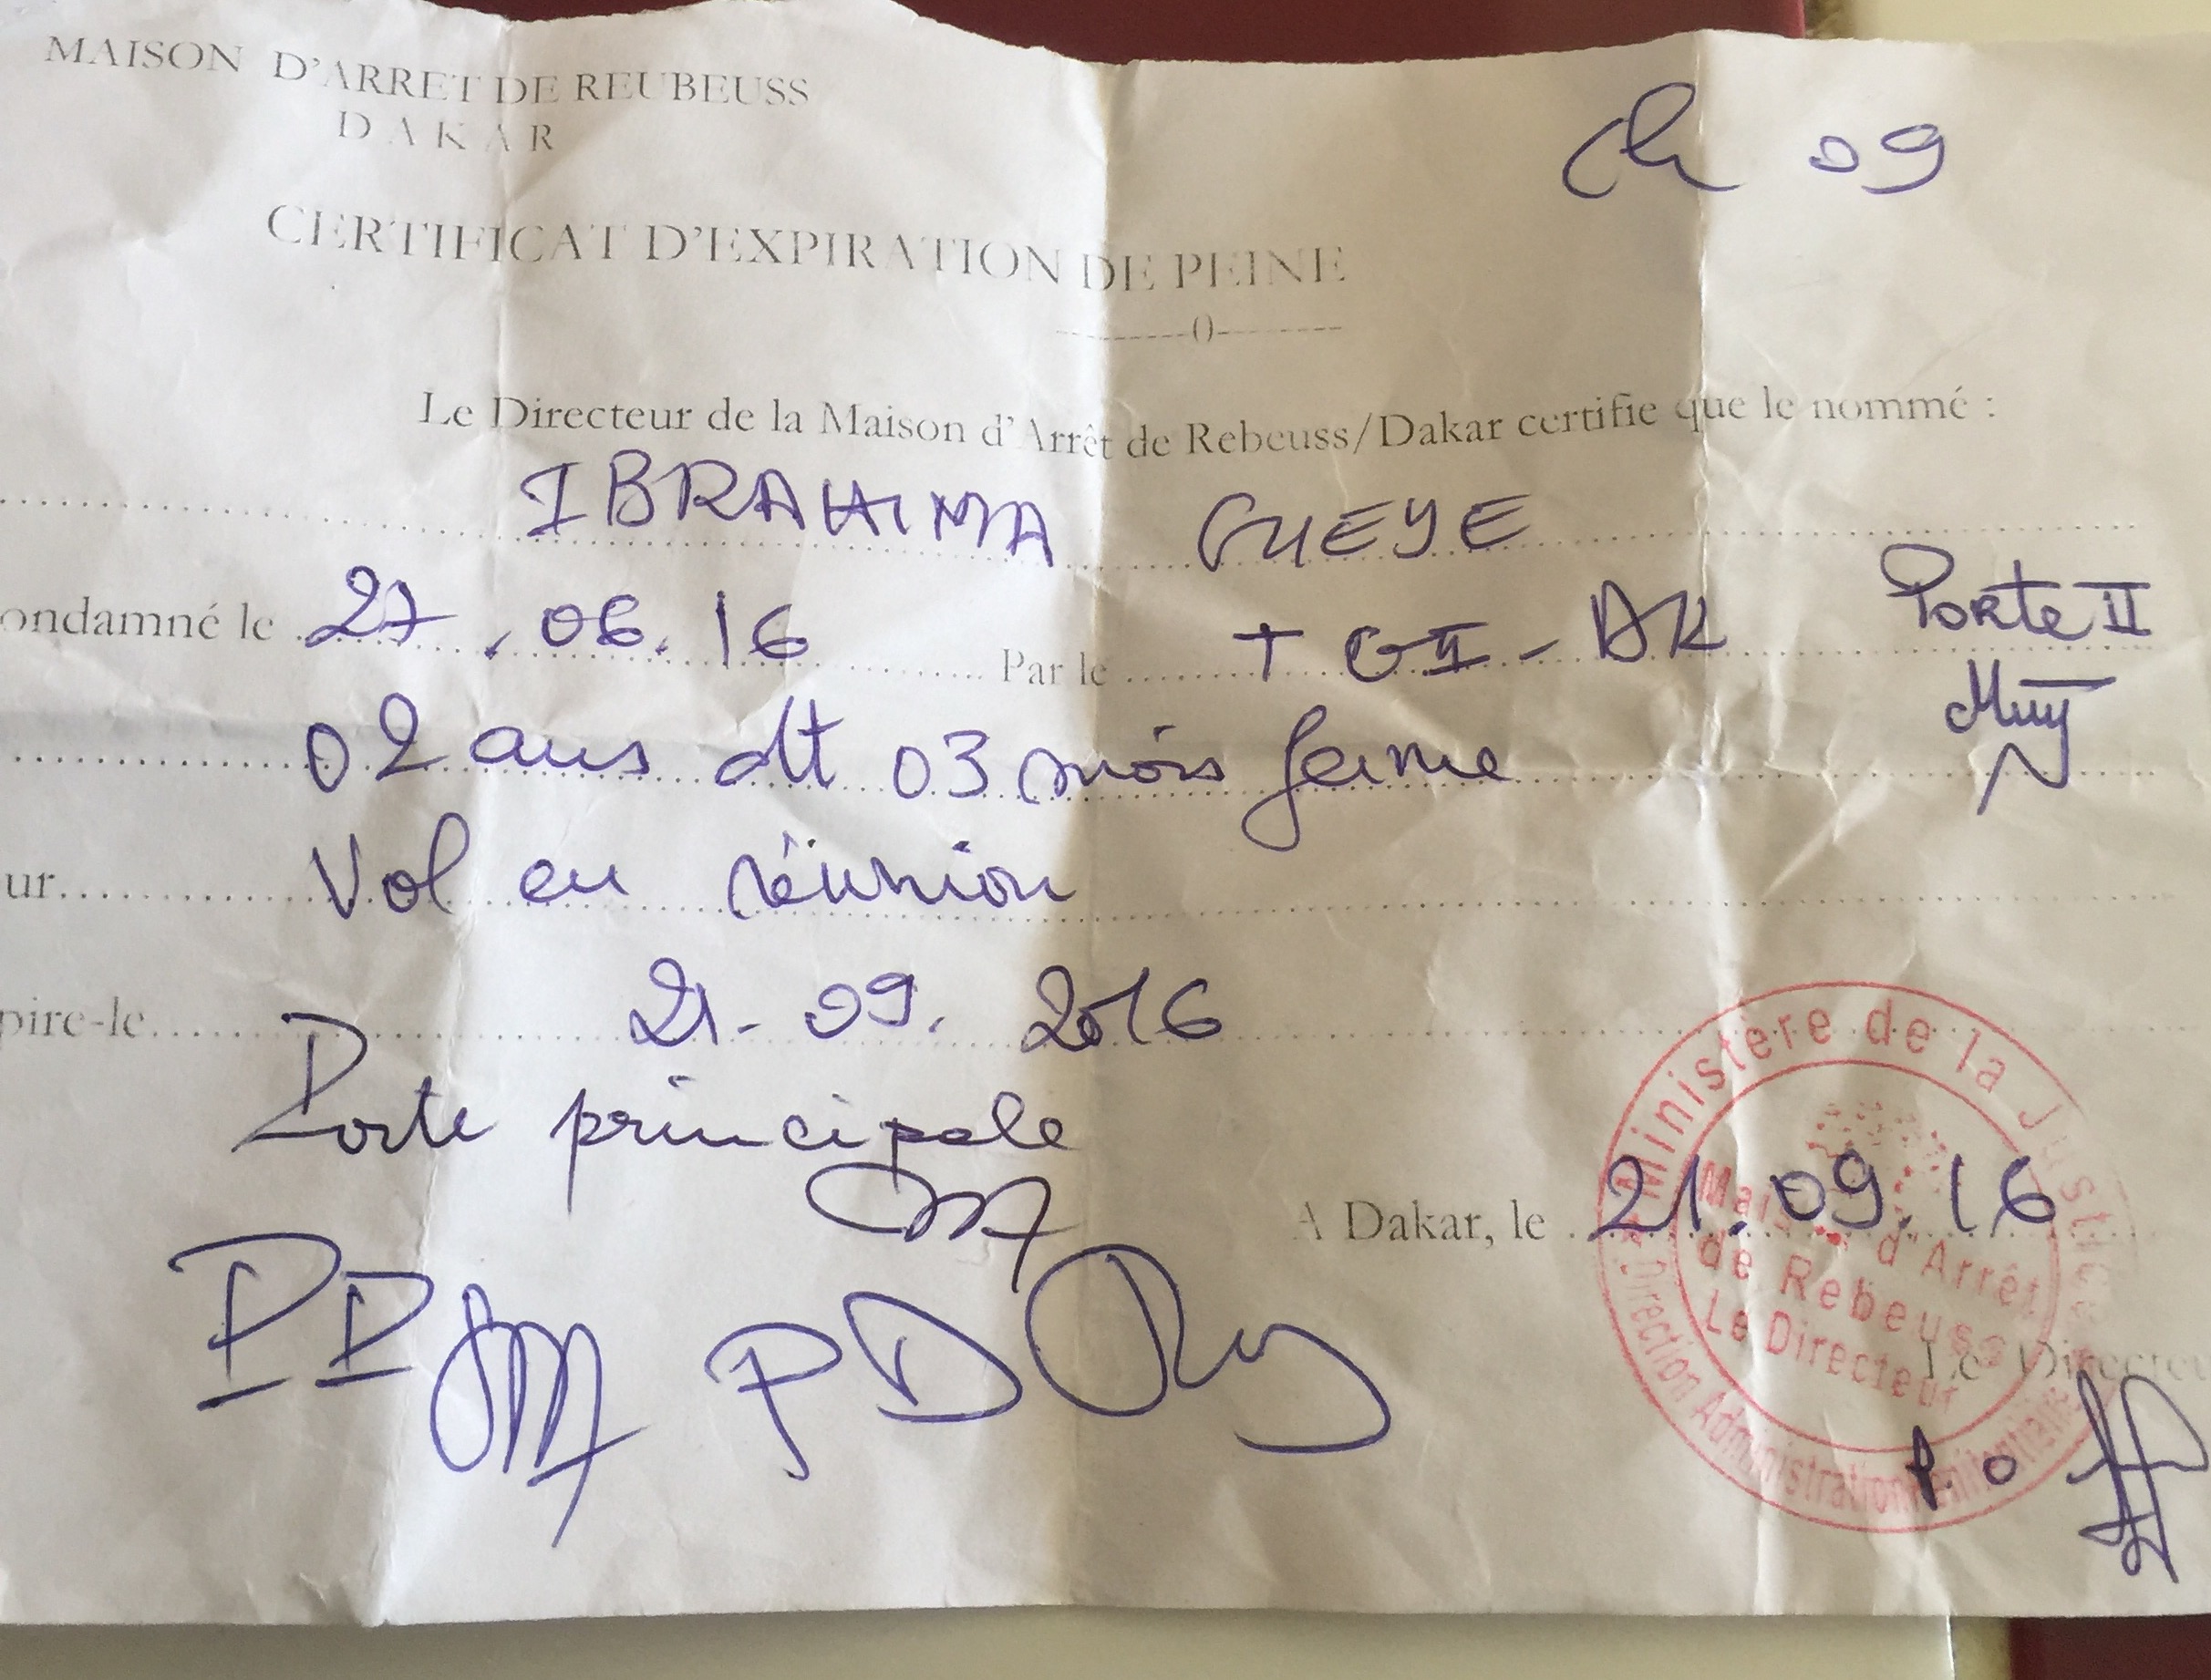 MAISON D'ARRET DE REUBEUSS
DAKAR
Ch 09
CERTIFICAT D'EXPIRATION DE PEINE
---------0---------
Le Directeur de la Maison d'Arrêt de Rebeuss/Dakar certifie que le nommé :
IBRAHIMA GUEYE
ondamné le 27.06.16 Par le TGI-DK
Porte II
02 ans dt 03 mois ferme
ur Vol en réunion
pire-le 21-09.2016
Porte principale
A Dakar, le 21.09.16
Ministère de la Justice
Direction Administration Pénitentiaire
Maison d'Arrêt
de Rebeuss
Le Directeur
Le Directeu
PD
P.O